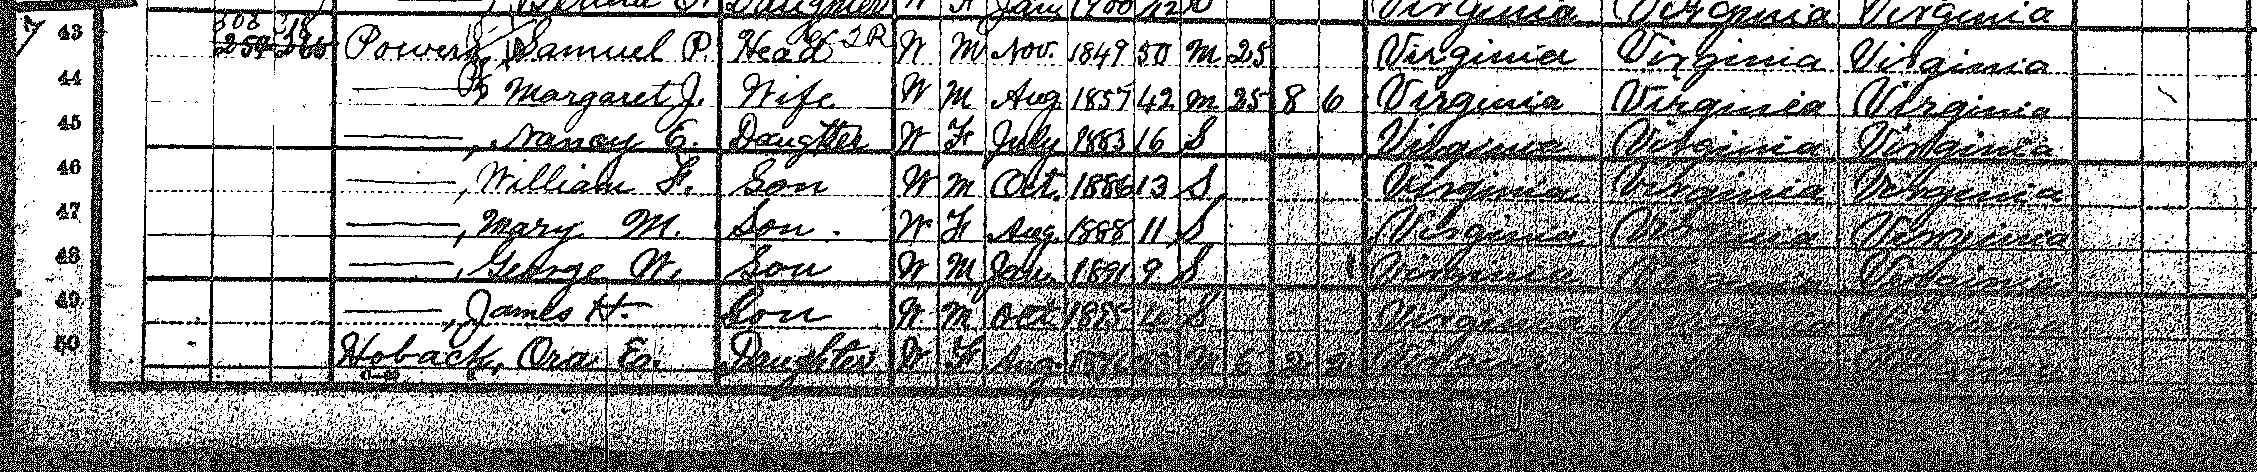 Daughter W F Jan 1900 Virginia Virginia Virginia
43 Powers, Samuel P. Head W M Nov. 1849 50 M 25 Virginia Virginia Virginia
44 —, Margaret J. Wife W M Aug 1857 42 M 25 8 6 Virginia Virginia Virginia
45 —, Nancy E. Daughter W F July 1883 16 S Virginia Virginia Virginia
46 —, William F. Son W M Oct. 1886 13 S Virginia Virginia Virginia
47 —, Mary M. Son W F Aug 1888 11 S Virginia Virginia Virginia
48 —, George W. Son W M Jan. 1891 9 S Virginia Virginia Virginia
49 —, James H. Son W M Oct 1895 4 S Virginia Virginia Virginia
50 Hoback, Ora E. Daughter W F Aug. M